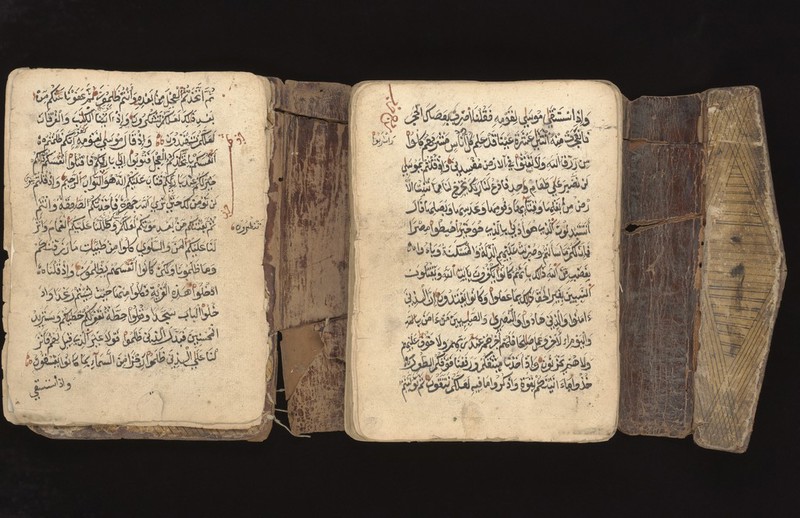 ثم اتخذتم العجل من بعده وانتم ظالمون ثم عفونا عنكم من
بعد ذلك لعلكم تشكرون واذ اتينا الكتب والفرقان
لعلكم تهتدون واذ قال موسى لقومه انكم ظلمتم
انفسكم باتخاذكم العجل فتوبوا الى باريكم فاقتلوا انفسكم ذلكم
خير لكم عند باريكم فتاب عليكم انه هو التواب الرحيم واذ قلتم يموسى
لن نومن لك حتى نرى الله جهرة فاخذتكم الصعقة وانتم
تنظرون
ثم بعثنكم من بعد موتكم لعلكم تشكرون وظللنا عليكم الغمام وانز
لنا عليكم المن والسلوى كلوا من طيبات ما رزقنكم
وما ظلمونا ولكن كانوا انفسهم يظلمون واذ قلنا
ادخلوا هذه القرية فكلوا منها حيث شئتم رغدا واد
خلوا الباب سجدا وقولوا حطة نغفر لكم خطيكم وسنزيد
المحسنين فبدل الذين ظلموا قولا غير الذي قيل لهم فانز
لنا على الذين ظلموا رجزا من السماء بما كانوا يفسقون
واذ استسقى
واذ استسقى موسى لقومه فقلنا اضرب بعصاك الحجر
فانفجرت منه اثنتا عشرة عينا قد علم كل اناس مشربهم كلوا
واشربوا
من رزق الله ولا تعثوا في الارض مفسدين واذ قلتم يموسى
لن نصبر على طعام واحد فادع لنا ربك يخرج لنا مما تنبت الا
رض من بقلها وقثايها وفومها وعدسها وبصلها قال
اتستبدلون الذي هو ادنى بالذي هو خير اهبطوا مصرا
فان لكم ما سالتم وضربت عليهم الذلة والمسكنة وباءو
بغضب من الله ذلك بانهم كانوا يكفرون بايت الله ويقتلون
النبيين بغير الحق ذلك بما عصوا وكانوا يعتدون ان الذين
ءامنوا والذين هادوا والنصرى والصبين من ءامن بالله
واليوم الاخر وعمل صالحا فلهم اجرهم عند ربهم ولا خوف عليهم
ولا هم يحزنون واذ اخذنا ميثقكم ورفعنا فوقكم الطور
خذوا ما ءاتينكم بقوة واذكروا ما فيه لعلكم تتقون ثم توليتم